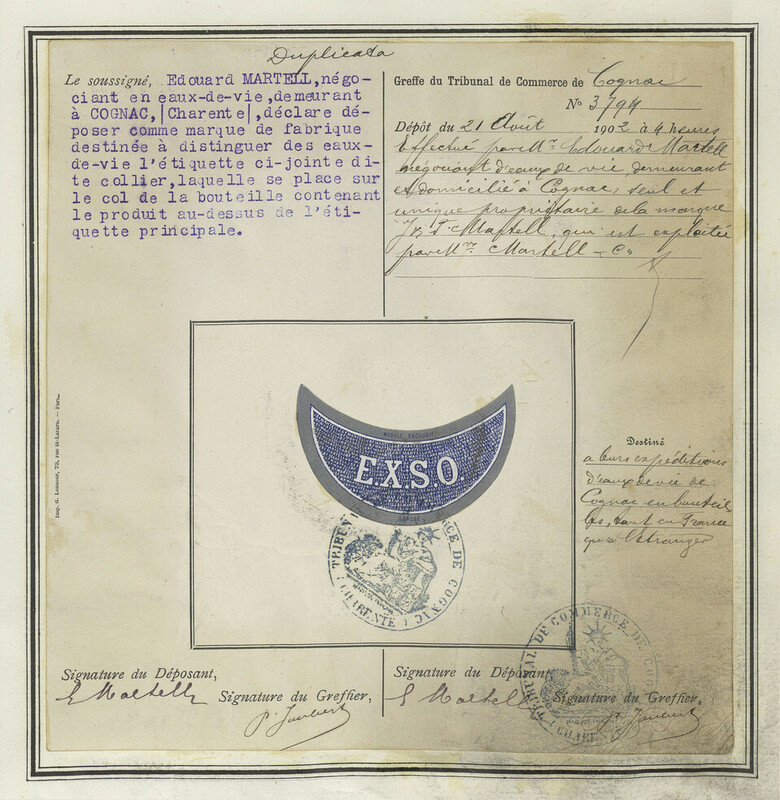 Duplicata
Le soussigné, Edouard MARTELL,négo-
ciant en eaux-de-vie,demeurant
à COGNAC,|Charente|,déclare dé-
poser comme marque de fabrique
destinée à distinguer des eaux-
de-vie l'étiquette ci-jointe di-
te collier,laquelle se place sur
le col de la bouteille contenant
le produit au-dessus de l'éti-
quette principale.
Greffe du Tribunal de Commerce de Cognac
No 3794
Dépôt du 21 Août 1902 à 4 heures
Effectué par Mr. Edouard Martell
négociant d'eaux de vie, demeurant
et domicilié à Cognac, seul et
unique propriétaire de la marque
J & F Martell, qui est exploitée
par Mrs Martell & Co
EXSO
TRIBUNAL DE COMMERCE DE COGNAC
(CHARENTE)
Destiné
a leurs expéditions
d'eaux de vie de
Cognac en bouteil
les, tant en France
qu'à l'étranger
Imp. G. Lesueur, rue St-Lazare. — Paris.
Signature du Déposant,
E Martell
Signature du Greffier,
Signature du Déposant,
E Martell
Signature du Greffier,
TRIBUNAL DE COMMERCE DE COGNAC
(CHARENTE)